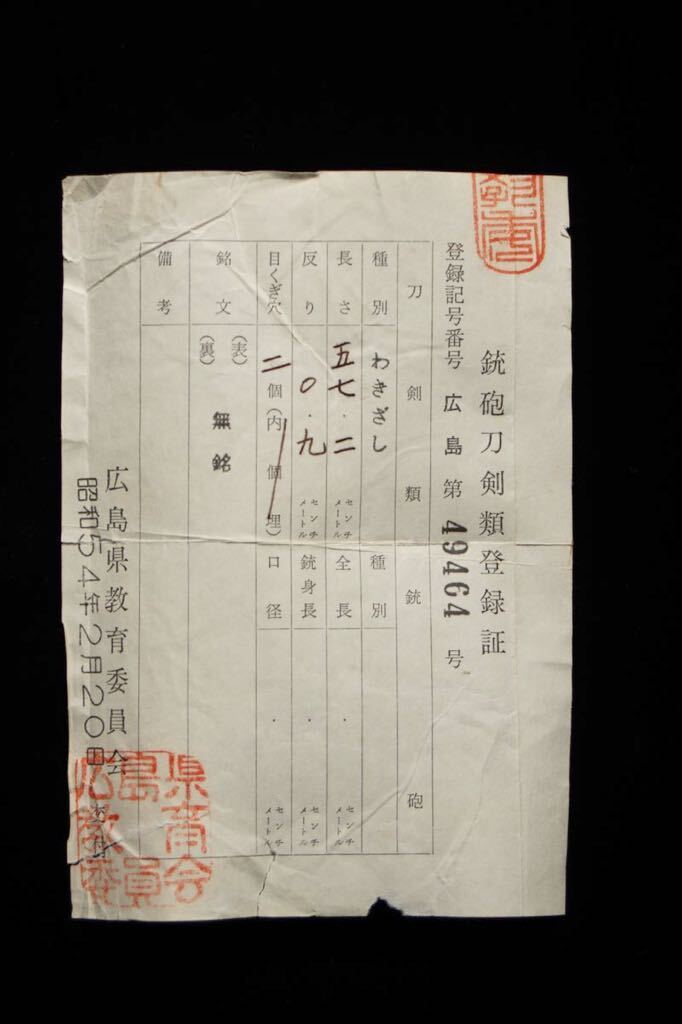 銃砲刀剣類登録証
登録記号番号 広島 第 49464 号
刀剣類
種別 わきざし
長さ 五七.二 センチメートル
反り 〇.九 センチメートル
目くぎ穴 二個(内 個埋)
銘文
(表) 無銘
(裏)
銃砲
種別
全長 . センチメートル
銃身長 . センチメートル
口径 . センチメートル
備考
広島県教育委員会
昭和54年2月20日 交付
広島県教育委員会